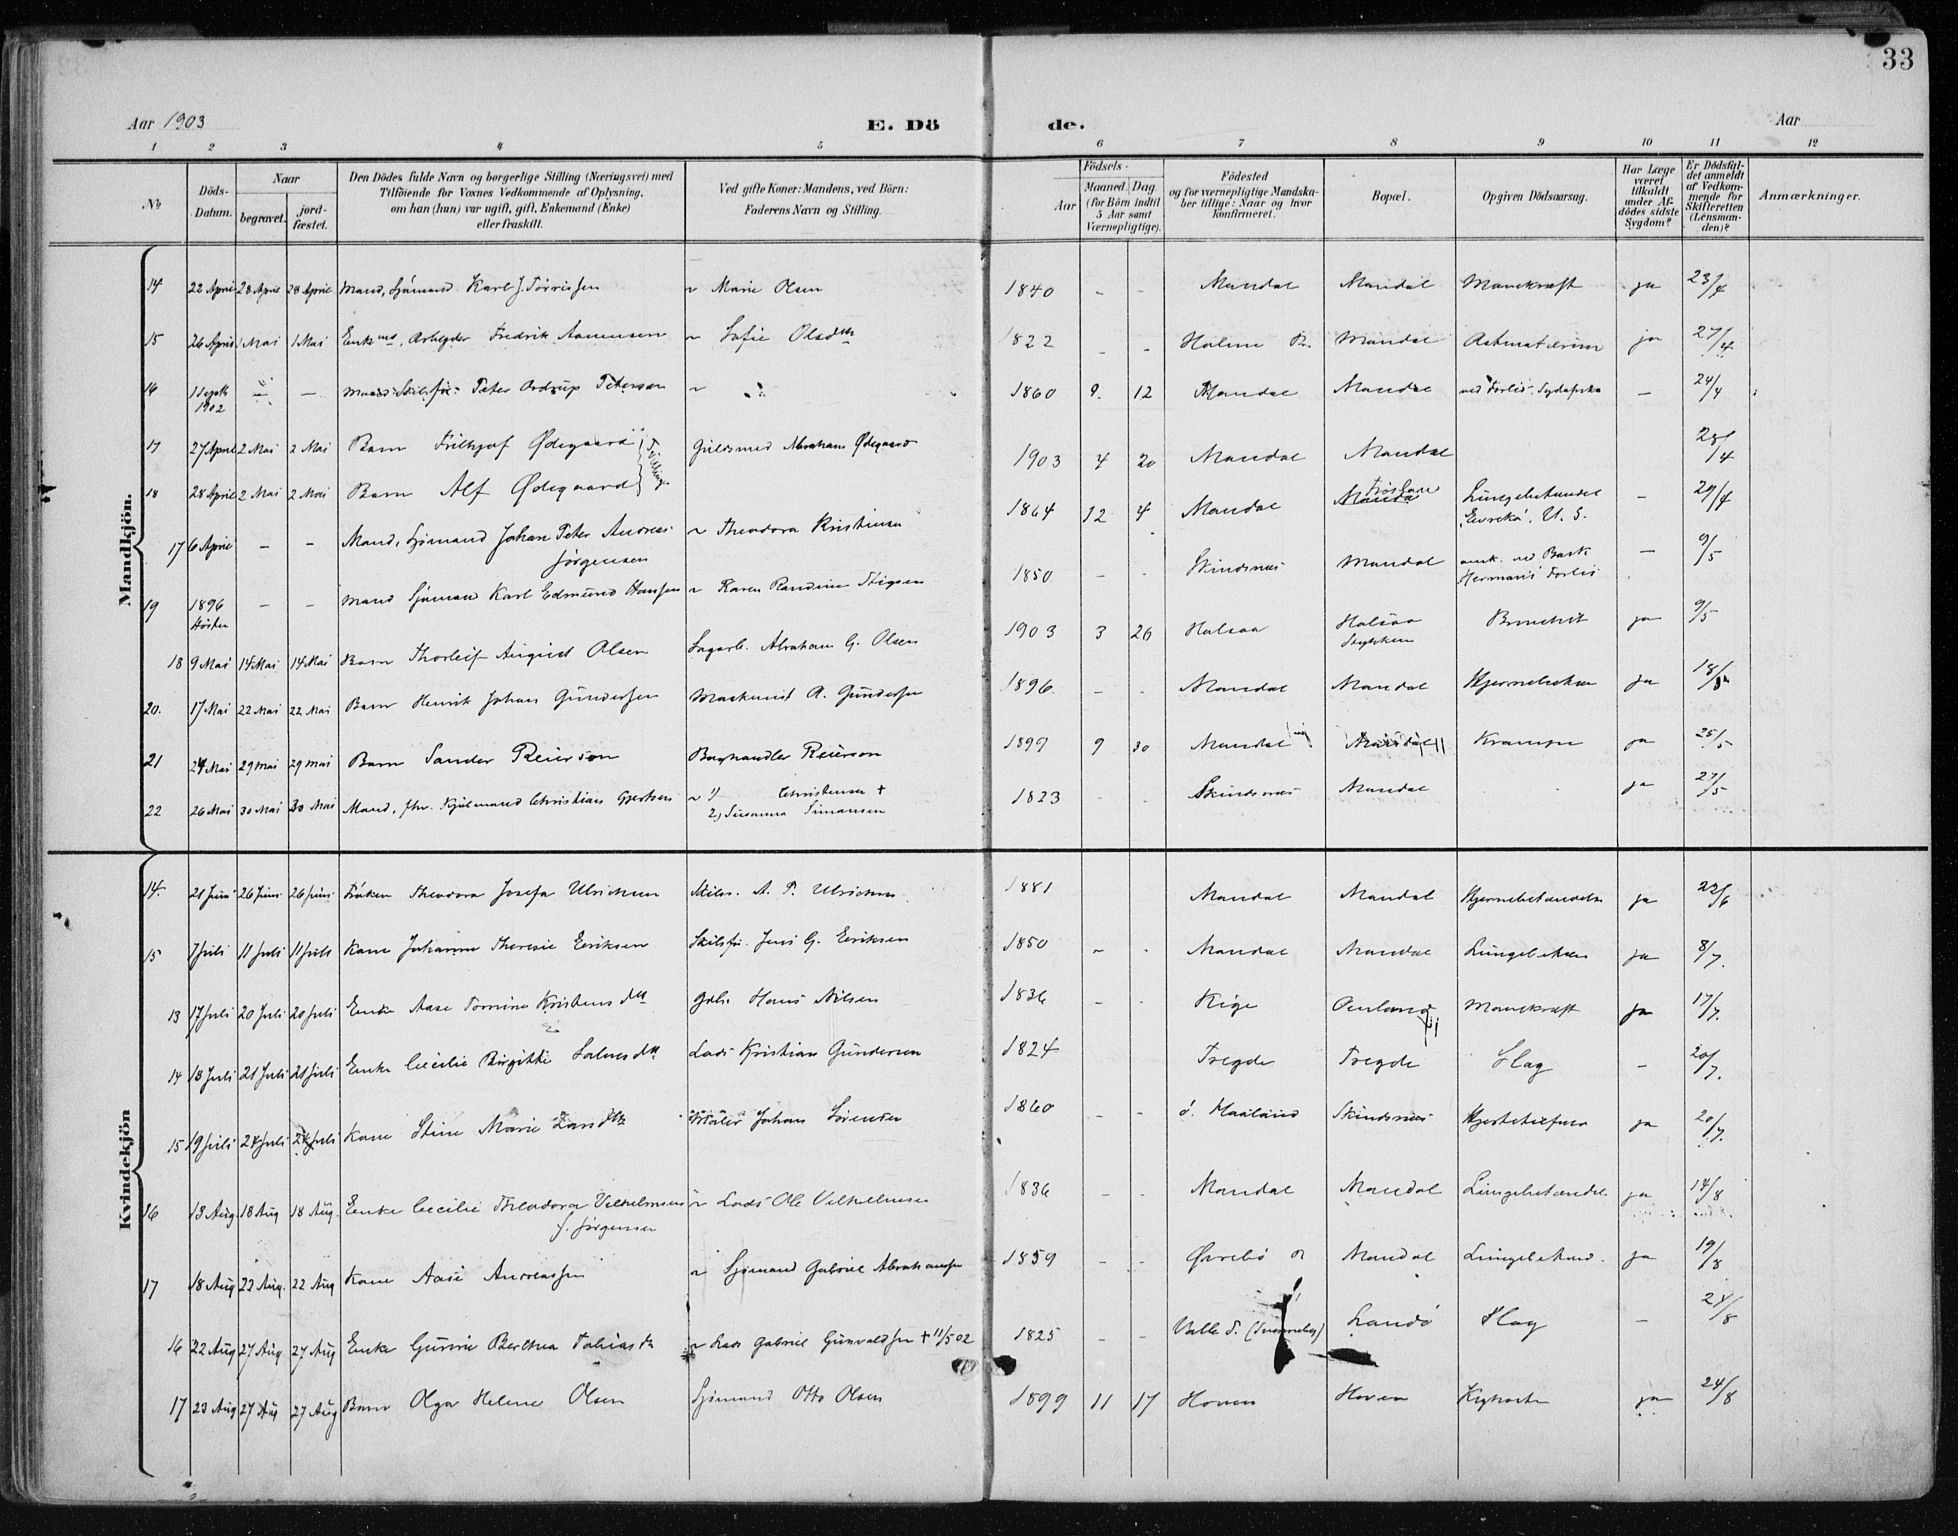 33
Aar 1903
E. Dö de.
Aar
1 2 3 4 5 6 7 8 9 10 11 12
No
Döds-Datum.
Naar
begravet.
jord-fæstet.
Den Dödes fulde Navn og borgerlige Stilling (Næringsvei) med
Tilföiende for Voxnes Vedkommende af Oplysning,
om han (hun) var ugift, gift, Enkemand (Enke)
eller fraskilt.
Ved gifte Koner: Mandens, ved Börn:
Faderens Navn og Stilling.
Födsels-
Aar
Maaned. Dag.
(for Börn indtil
5 Aar samt
Værnepligtige).
Födested
og for værnepligtige Mandska-
ber tillige: Naar og hvor
konfirmeret.
Bopæl.
Opgiven Dödsaarsag.
Har Læge
været
tilkaldt
under Af-
dödes sidste
Sygdom?
Er Dödsfal-
det anmeldt
af Vedkom-
mende for
Skifteretten
(Lensman-
den)?
Anmærkninger.
Mandkjön.
14 22 April 28 April 28 April Mand, Sjömand Karl J. Törrissen ~ Marie Olsen 1840 - - Mandal Mandal Mavekræft ja 23/4
15 26 April 1 Mai 1 Mai Enkmd, Arbeyder Fredrik Aanensen ~ Sofie Olsdtr 1822 - - Holme P. Mandal ja 27/4
16 1 Septb 1902 — — Mand Skibsför. Peter Ordrup Peterson ~ 1860 9. 12 Mandal Mandal ved Forlis. Sydafrika — 24/4
17 27 April 2 Mai 2 Mai Barn Fridtjof Ødegaard Guldsmed Abraham Ødegaard 1903 4 20 Mandal Mandal 28/4
Tvillinger
18 28 April 2 Mai 2 Mai Barn Alf Ødegaard
17 6 April - - Mand, Sjömand Johan Peter Andreas Jörgensen ~ Theodora Kristensen 1864 12 4 Mandal Lungebetændel "Eureka", U. S. — 29/4
19 1896 Hösten - - Mand Sjömand Karl Edmund Hansen ~ Karen Randine Stigsen 1850 - - Skindsnæs Mandal omk. ved Bark Hermanis Forlis — 9/5
18 9 Mai 14 Mai 14 Mai Barn Thorleif August Olsen Sagarb. Abraham G. Olsen 1903 3 26 Halsaa Halsaa Stykken Bronchit ja 9/5
20. 17 Mai 22 Mai 22 Mai Barn Henrik Johan Gundersen Maskinist A. Gundersen 1896 - - Mandal Mandal Hjernebetæn ja 18/5
21 24 Mai 29 Mai 29 Mai Barn Sander Reierson Boghandler Reierson 1899 9 30 Mandal Mandal Krampe ja 25/5
22 26 Mai 30 Mai 30 Mai Mand, fhv. Christian Gjertsen ~ 1) Christensen + 2) Susanna Simonsen 1823 - - Skindsnæs Mandal ja 27/5
Kvindekjön
14. 21 Juni 26 Juni 26 Juni Fröken Theodora Josefa Ulrichsen Skibsr. A. T. Ulrichsen 1881 Mandal Mandal Hjernebetændelse ja 22/6
15 7 Juli 11 Juli 11 Juli Kone Johanne Theresie Eeriksen Skibsfr. Jens G. Eeriksen 1850 - - Mandal Mandal Lungebetæn ja 8/7.
13 17 Juli 20 Juli 20 Juli Enke Aase Tomine Kristensdtr Gdbr Hans Nilsen 1836 - - Kige Mavekræft ja 17/7.
14 18 Juli 21 Juli 21 Juli Enke Cecilie Birgitte Salvesdtr Lods Kristian Gundersen 1824 Tregde Tregde Slag — 20/7.
15 19 Juli 24 Juli 24 Juli Kone Stine Marie Larsdtr Maler Johan Sörensen 1860 - - ö. Haaland Skindsnæs ja 20/7.
16 13 Aug. 18 Aug 18 Aug. Enke Cecilie Theodora Vilhelmsen f. Jörgensen ~ Lods Ole Vilhelmsen 1836 - - Mandal Mandal Lungebetændel ja 14/8
17 18 Aug 22 Aug. 22 Aug Kone Aase Andreassen ~ Sjömand Gabriel Abrahamsen 1859 - - Øvrebö Mandal Lungebetænd. ja 19/8
16 22 Aug 27 Aug 27 Aug Enke Gunvie Berthea Tobiasdtr ~ Lods Gabriel Gunvaldsen + 11/5 02 1825 - - Valle S. Landö Slag — 24/8
17 23 Aug 27 Aug 27 Aug Barn Olga Helene Olsen Sjömand Otto Olsen 1899 11 17 Hoven Hoven Kighoste ja 24/8